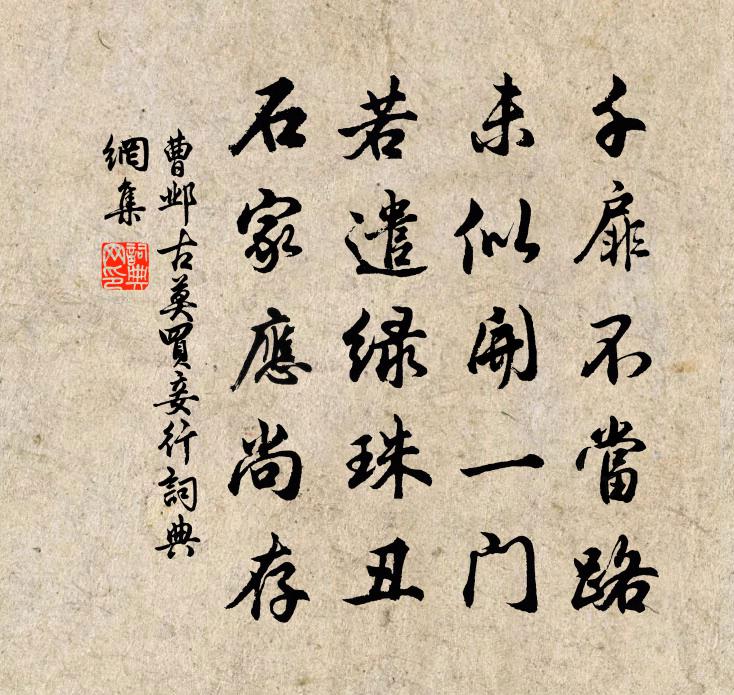 千扉不當路
未似開一門
若遣绿珠丑
石家應尚存
曹邺古莫買妾行詞典
網集
詞典网印